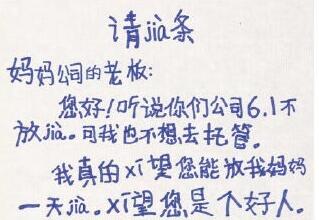 请jià条
妈妈公司的老板:
您好!听说你们公司6.1不
放jià。可我也不想去托管。
我真的xī望您能放我妈妈
一天jià。xī望您是个好人。